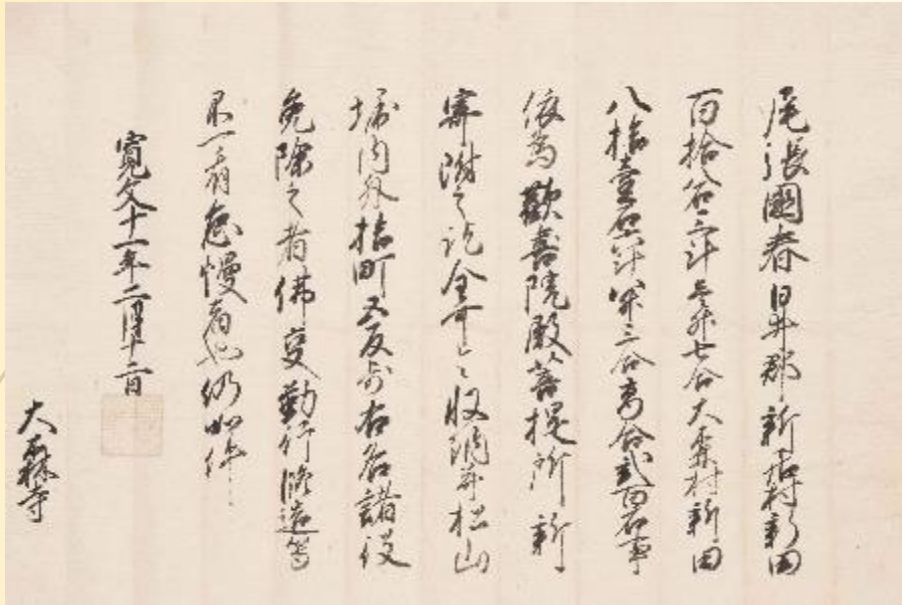 尾張國春日井郡新居村新田
百拾八石三斗壱升七合大森村新田
八拾壹石六斗八升三合高合貳百石事
依為歡喜院殿菩提所新
寄附之訖全可收納并松山
境内外拾町五反步右名諸役
免除之者佛叓勤行修造等
不可有怠慢者也仍如件
寛文十一年二月十二日
大森寺